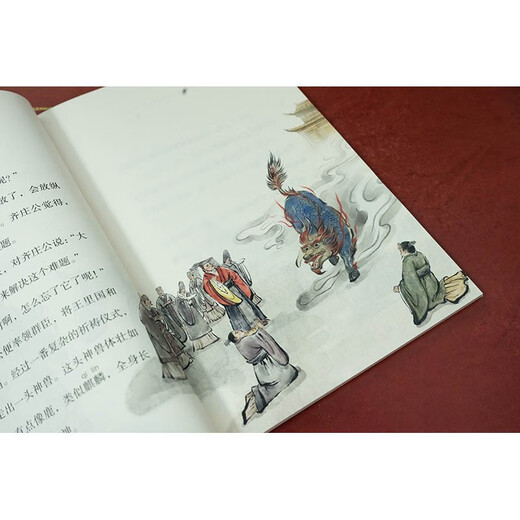 呢?”
放了,会放纵
。齐庄公觉得,
题。
,对齐庄公说:“大
来解决这个难题。
好啊,怎么忘了它了呢!”
公便率领群臣,将王里国和
。经过一番复杂的祈祷仪式,
走出一头神兽。这头神兽体壮如
qí lín
有点像鹿,类似麒麟,全身长
坤。